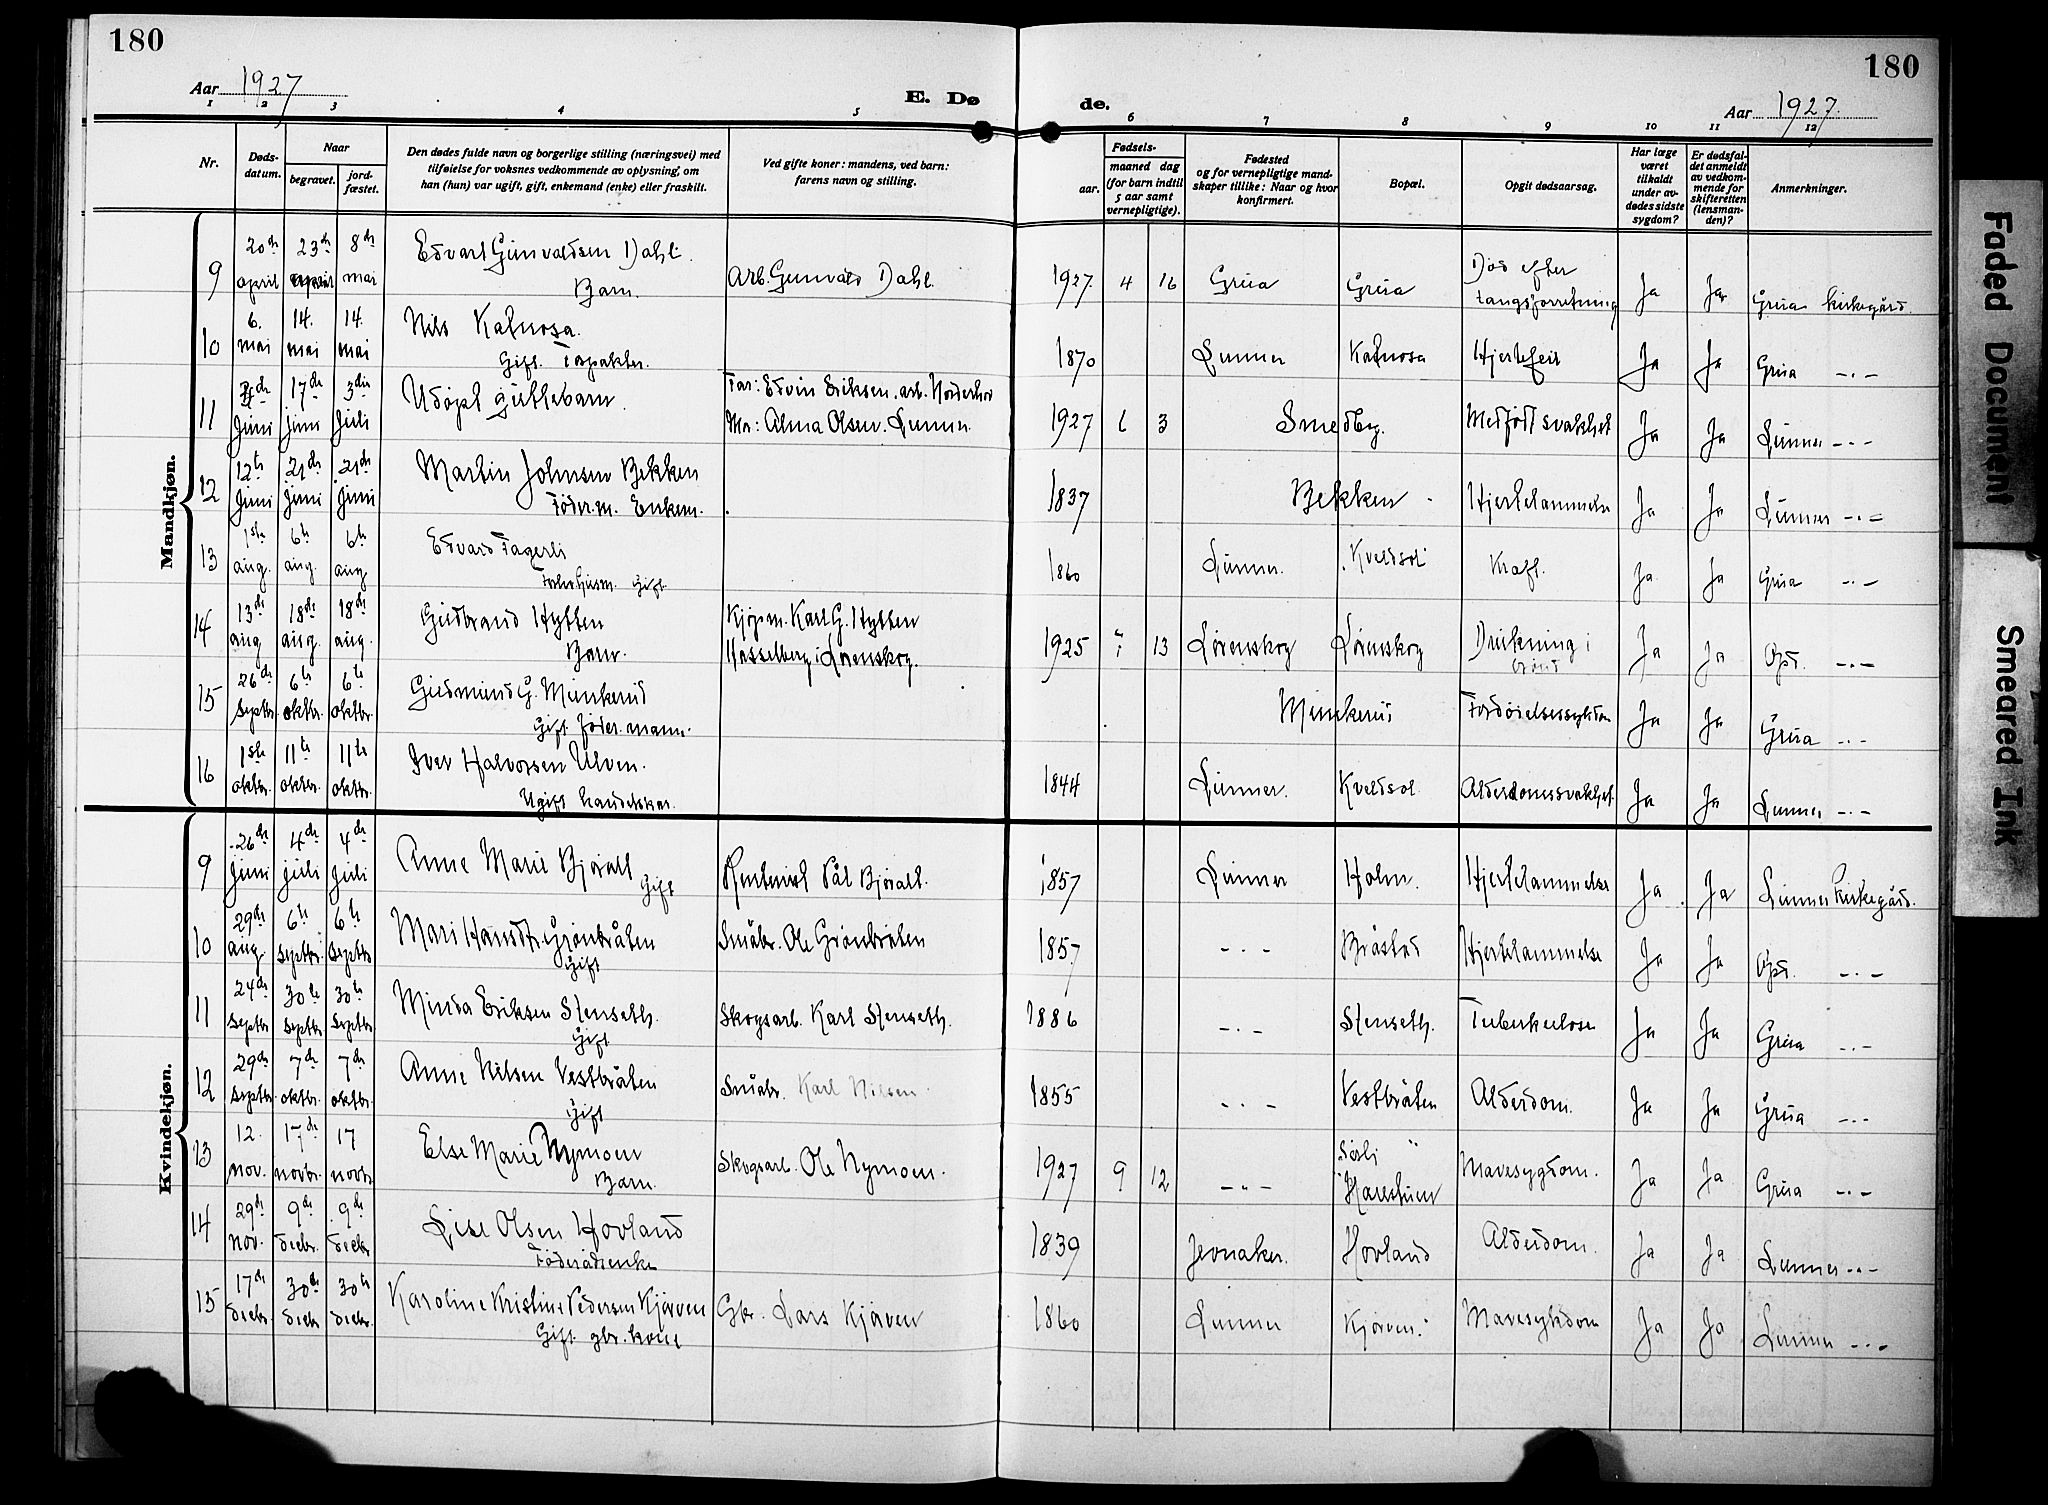 180
180
Aar 1927
E. Dø
de.
Aar 1927.
1 2 3 4 5 6 7 8 9 10 11 12
Nr.
Døds-
datum.
Naar
begravet.
jord-
fæstet.
Den dødes fulde navn og borgerlige stilling (næringsvei) med
tilføielse for voksnes vedkommende av oplysning, om
han (hun) var ugift, gift, enkemand (enke) eller fraskilt.
Ved gifte koner: mandens, ved barn:
farens navn og stilling.
Fødsels-
aar.
maaned dag
(for barn indtil
5 aar samt
vernepligtige).
Fødested
og for vernepligtige mand-
skaper tillike: Naar og hvor
konfirmert.
Bopæl.
Opgit dødsaarsag.
Har læge
været
tilkaldt
under av-
dødes sidste
sygdom?
Er dødsfal-
det anmeldt
av vedkom-
mende for
skifteretten
(lensman-
den)?
Anmerkninger.
Mandkjøn.
20de 23de 8de Edvart Gunvaldsen Dahl.
9 april april mai Barn. Arb. Gunvald Dahl. 1927. 4 16 Grua Grua Død efter tangforretning Ja Ja Grua kirkegård.
6. 14. 14. Nils Kalvosa.
10 mai mai mai Gift. 1870 Lunner Kalvosa Hjertefeil Ja Ja Grua -.-
17de 3die Udøpt guttebarn. Far: Edvin Eriksen. arb. Norderhov
11 Juni juni Juli Mor: Alma Olsen. Lunner. 1927 6 3 Smedbg. Medfødt svakhet Ja Ja Lunner -.-
12te 21de 21de Martin Johnsen Bekken
12 Juni juni juni Føder.m. Enkem. 1837 Bekken Hjertelammelse Ja Ja Lunner -.-
1ste 6te 6te Edvard Fagerli
13 aug. aug. aug Gift 1860 Lunner. Kveldsol Kraft. Ja Ja Grua -.-
13de 18de 18de Gudbrand Hytten Kjøpm. Karl G. Hytten
14 aug aug. aug. Barn. Hasselberg i Lørenskog. 1925 13 Lørenskog Lørenskog Drukning i brønd Ja Ja Opd. -.-
26de 6te 6te Gudmund G. Munkerud
15 septbr. oktbr. oktbr. Gift føder.mann. Munkerud Fordøielsessykdom Ja Ja Grua -.-
1ste 11te 11te Iver Halvorsen Ulven.
16 oktbr. oktbr. oktbr. Ugift handelskar. 1844 Lunner. Kveldsol. Alderdomssvakhet. Ja Ja Lunner -.-
Kvindekjøn.
26de 4de 4de Anne Marie Bjøralt
9 juni juli juli Gift Rentenist Pål Bjøralt. 1857 Lunner Holm. Hjertelammelse Ja Ja Lunner Kirkegård.
29de 6te 6te Mari Hansdtr. Grønbråten Småbr. Ole Grønbråten
10 aug. septbr. septbr Gift 1857 -.- Bråstad Hjertelammelse Ja Ja Opd. -.-
24de 30te 30te Minda Eriksen Stenseth.
11 septbr septbr septbr Gift Skogsarb. Karl Stenseth. 1886 -.- Stenseth. Tuberkulose Ja Ja Grua -.-
29de 7de 7de Anne Nilsen Vestbråten
12 septbr. oktbr. oktbr. Gift Småbr. Karl Nilsen. 1855 -.- Vestbråten Alderdom. Ja Ja Grua -.-
12. 17de 17 Else Marie Nymoen
13 nov. novbr. novbr Barn. Skogsarb. Ole Nymoen. 1927 9 12 -.- Søsli Harestuen Mavesygdom. Ja Ja Grua -.-
29de 9de 9de Lise Olsen Hovland
14 nov. decbr. decbr Føderådsenke 1839 Jevnaker. Hovland Alderdom. Ja Ja Lunner -.-
17de 30te 30te Karoline Kristine Pedersen Kjørven Gbr. Lars Kjørven
15 decbr. decbr decbr. Gift gbr. kone 1860 Lunner Kjørven. Mavesykdom Ja Ja Lunner -.-
Faded Document
Smeared Ink